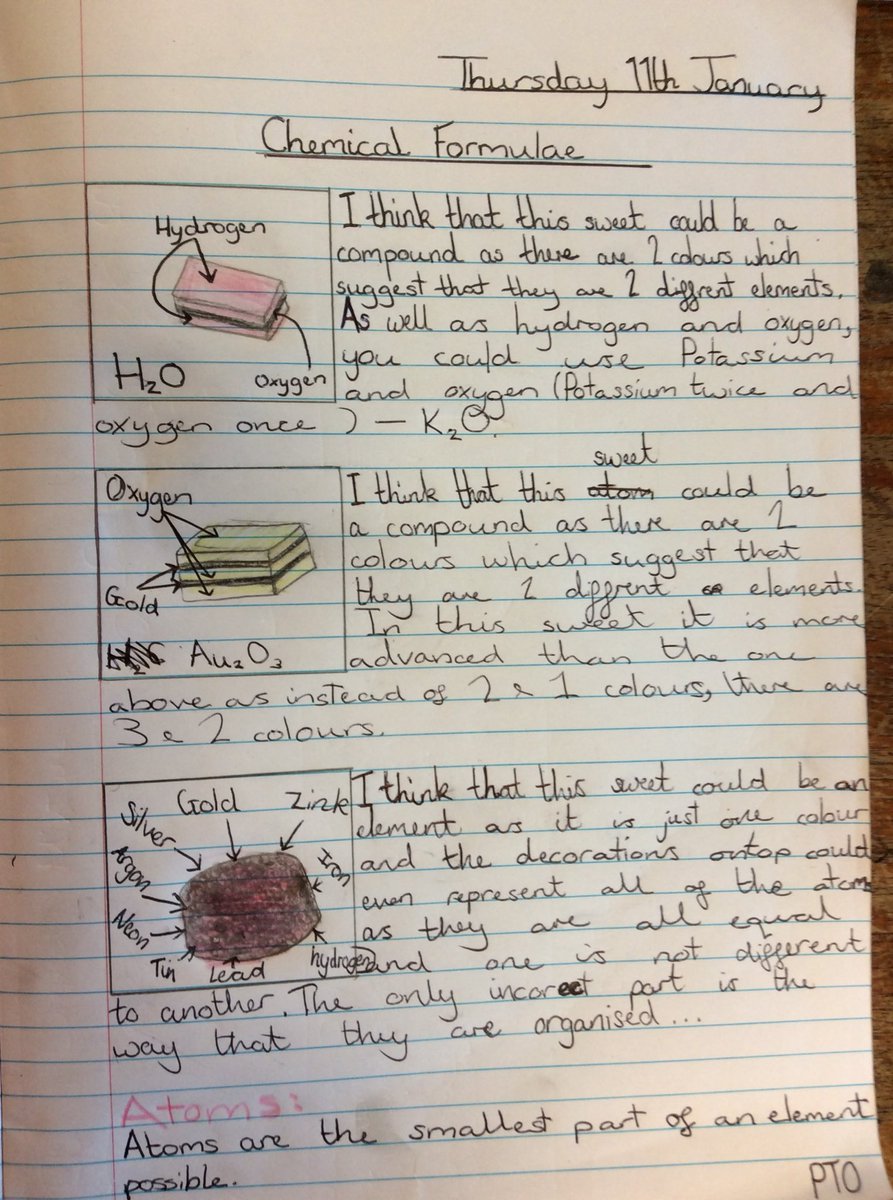 Thursday 11th January
Chemical Formulae
Hydrogen
H₂O
Oxygen
I think that this sweet could be a
compound as there are 2 colours which
suggest that they are 2 diffrent elements.
As well as hydrogen and oxygen,
you could use Potassium
and oxygen (Potassium twice and
oxygen once ) — K₂O.
Oxygen
Gold
Au₂O₃
sweet
I think that this atom could be
a compound as there are 2
colours which suggest that
they are 2 diffrent elements.
In this sweet it is more
advanced than the one
above as instead of 2 & 1 colours, there are
3 & 2 colours.
Silver
Gold
Zink
Argon
Iron
Neon
Tin
Lead
hydrogen
I think that this sweet could be an
element as it is just one colour
and the decorations ontop could
even represent all of the atom
as they are all equal
and one is not different
to another. The only incorect part is the
way that they are organised...
Atoms:
Atoms are the smallest part of an element
possible.
PTO